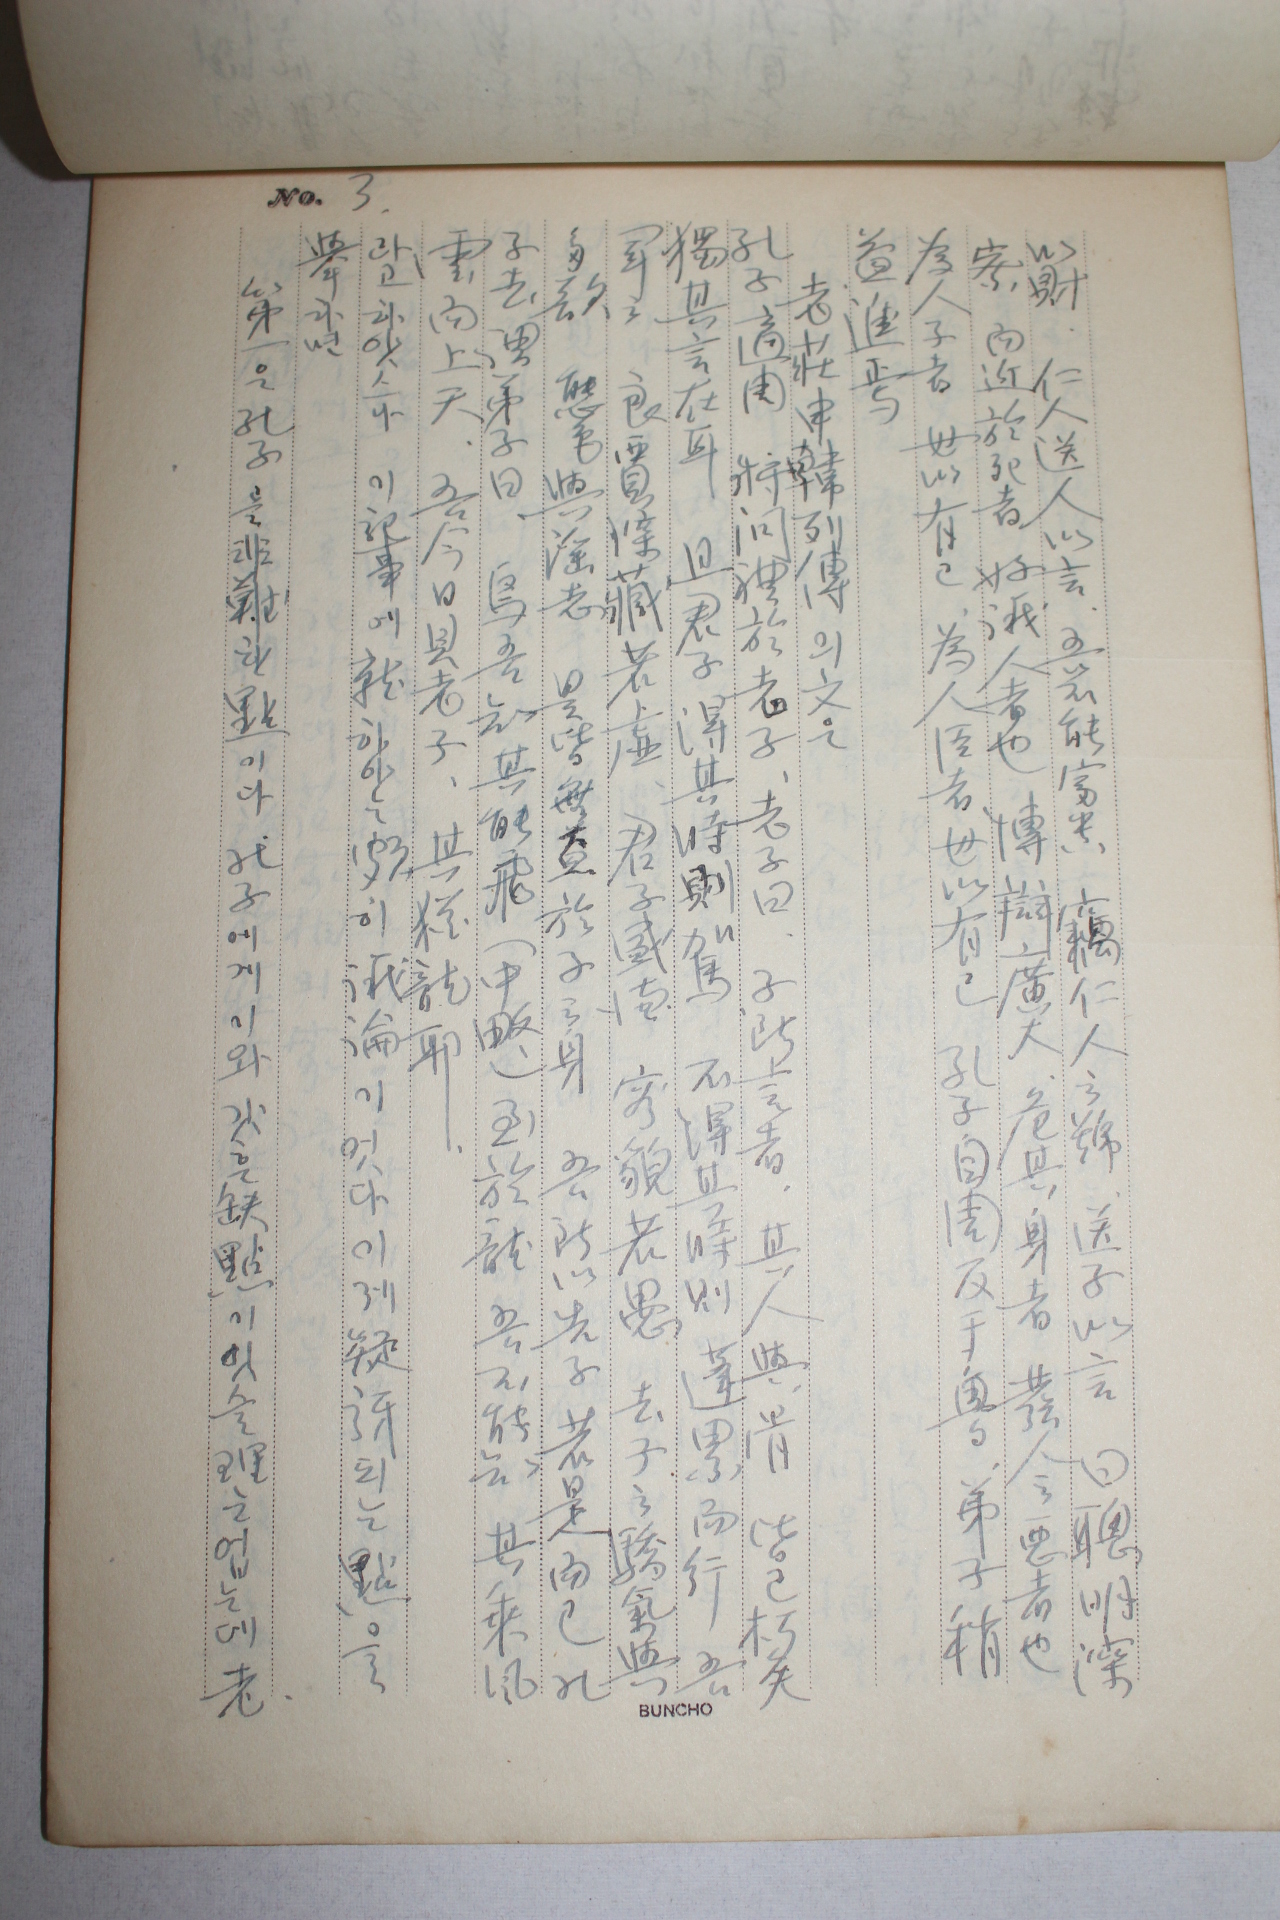 No. 3.
以財. 仁人送人以言. 吾不能富貴 竊仁人之號, 送子以言 曰聰明深
察 而近於死者 好議人者也 博辯廣大, 危其身者 發人之惡者也
為人子者 毋以有己, 為人臣者 毋以有己 孔子自周反于魯, 弟子稍
益進焉
老莊申韓列傳의文은
孔子適周 將問禮於老子, 老子曰. 子所言者, 其人與骨 皆已朽矣
獨其言在耳 且君子得其時則駕 不得其時則 蓬累而行 吾
聞之 良賈深藏若虛, 君子盛德 容貌若愚 去子之驕氣與
多欲 態色與淫志 是皆無益於子之身 吾所以告子 若是而已 孔
子去, 謂弟子曰, 鳥吾知其能飛 (中略) 至於龍 吾不能知 其乘風
雲而上天. 吾今日見老子, 其猶龍耶.
라고하앗스나 이記事에就하야는頗히議論이엇다이제疑訝되는點을
擧하면
第一은孔子를非難한點이다 孔子에게이와갓흔缺點이잇슬理는업는데老
BUNCHO